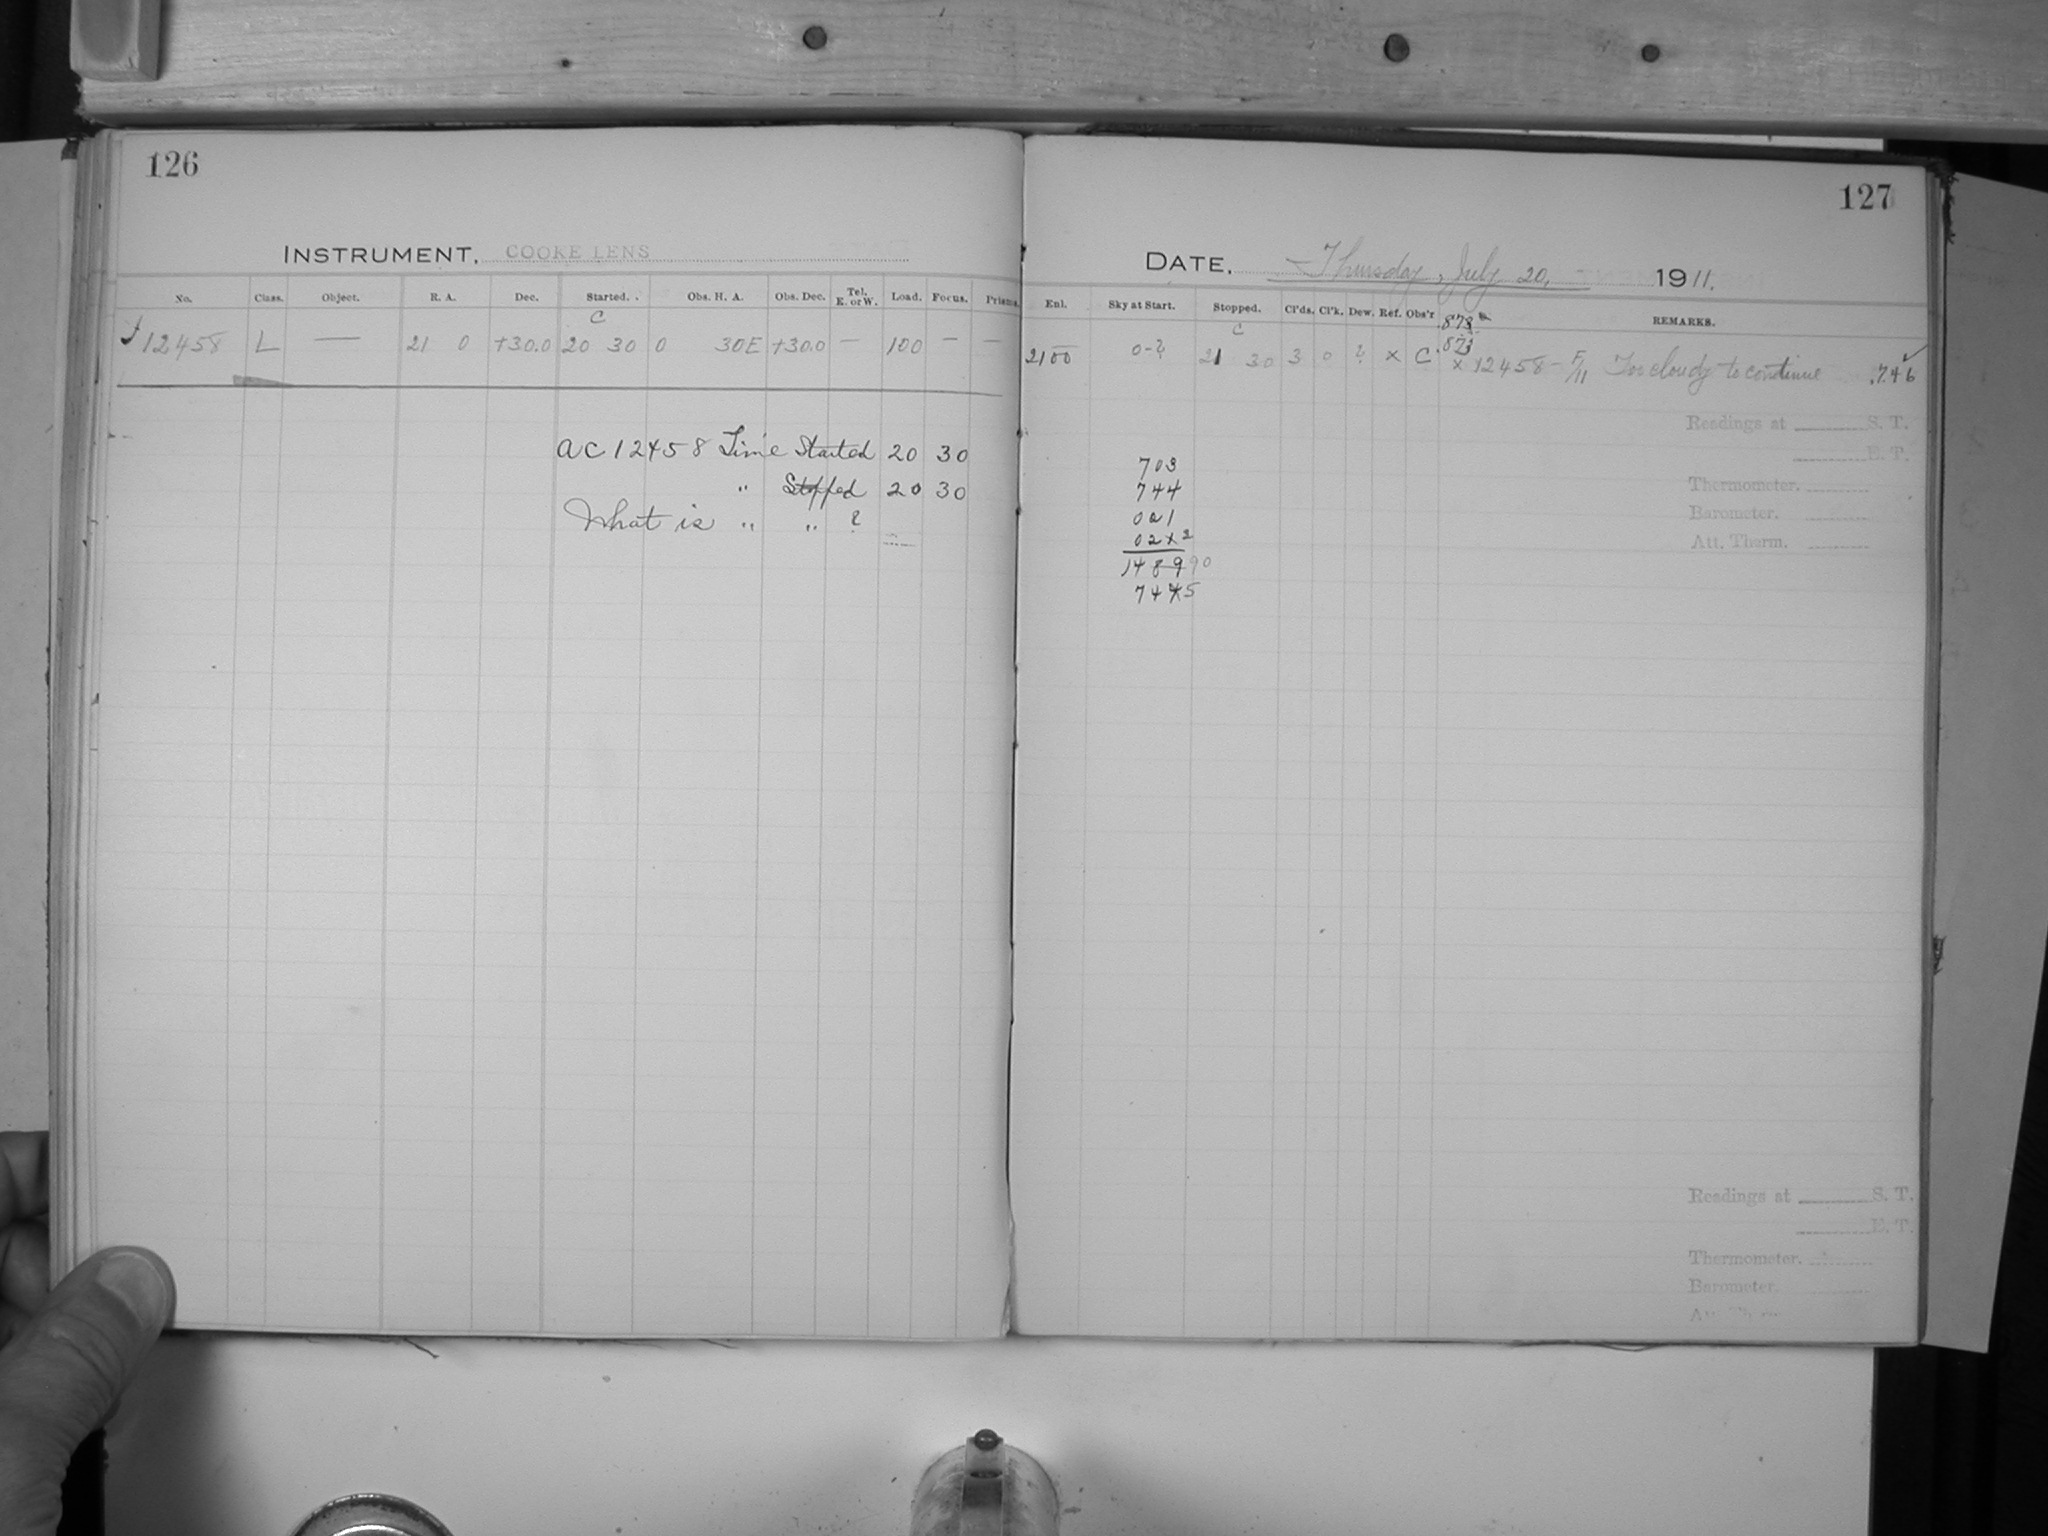 126
INSTRUMENT, COOKE LENS
No. Class. Object. R. A. Dec. Started. Obs. H. A. Obs. Dec. Tel. E. or W. Load. Focus. Prisms.
C
12458 L — 21 0 +30.0 20 30 0 30E +30.0 — 100 — —
AC 12458 Time Started 20 30
" Stopped 20 30
What is " " ?
127
DATE, Thursday, July 20, 1911.
Exl. Sky at Start. Stopped. Cl'ds. Cl'k. Dew. Ref. Obs'r REMARKS.
C
.873
.873
2100 0-? 21 30 3 0 ? × C. × 12458 - F/11 Too cloudy to continue .746
Readings at S. T.
E. T.
Thermometer.
Barometer.
Att. Therm.
703
744
021
02
148990
7445
Readings at S. T.
E. T.
Thermometer.
Barometer.